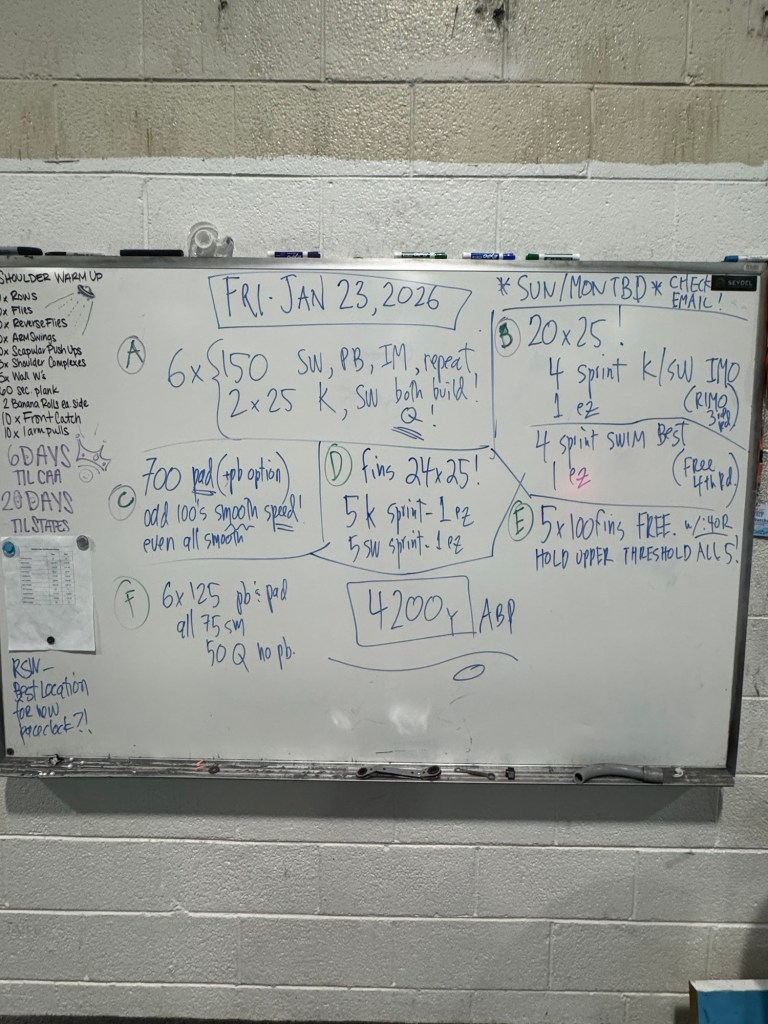 SHOULDER WARM UP
x Rows
x Flies
x Reverse Flies
x ArmSwings
x Scapular Push Ups
x Shoulder Complexes
x Wall W's
60 sec. plank
2 Banana Rolls ea. side
10 x Front Catch
10 x 1 arm pulls
6 DAYS
TIL CAA
20 DAYS
TIL STATES
RSW-
Best Location
for new
paceclock?!
FRI. JAN 23, 2026
* SUN/MON TBD * CHECK
EMAIL!
SEYDEL
A
6x { 150 SW, PB, IM, repeat,
2 x 25 K, SW both build!
Q!
B 20 x 25!
4 sprint K/SW IMO
1 ez (RIMO
3rd
rd.)
4 sprint SWIM Best
1 ez (Free
4th rd.)
C 700 pad (+pb option)
odd 100's smooth speed!
even all smooth
D fins 24x25!
5 K sprint - 1 ez
5 sw sprint - 1 ez
E 5 x 100 fins FREE. w/:40R
HOLD UPPER THRESHOLD ALL 5!
F 6x125 pb & pad
all 75 sm
50 Q no pb.
4200y ABP